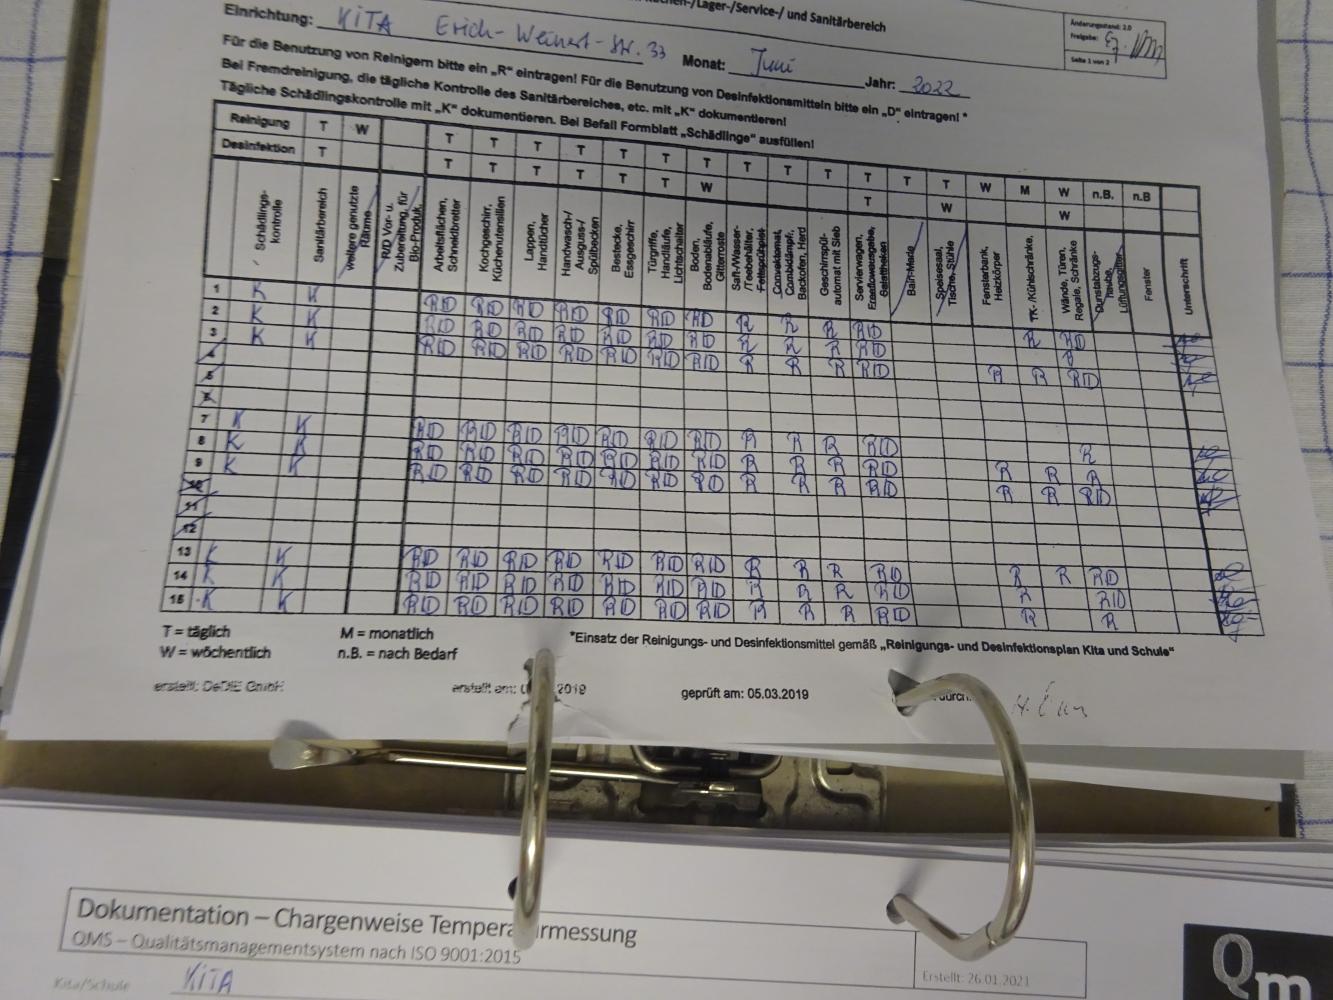 -/Lager-/Service-/ und Sanitärbereich
Einrichtung: KITA Erich-Weinert-Str. 33 Monat: Juni Jahr: 2022
Änderungsstand: 2.0
Freigabe:
Seite 1 von 2
Für die Benutzung von Reinigern bitte ein „R" eintragen! Für die Benutzung von Desinfektionsmitteln bitte ein „D" eintragen! *
Bei Fremdreinigung, die tägliche Kontrolle des Sanitärbereiches, etc. mit „K" dokumentieren!
Tägliche Schädlingskontrolle mit „K" dokumentieren. Bei Befall Formblatt „Schädlinge" ausfüllen!
Reinigung T W T T T T T T T T T T T T T W M W n.B. n.B
Desinfektion T T T T T T T W T W W
Schädlings-
kontrolle
Sanitärbereich
weitere genutzte
Räume
R/D Vor- u.
Zubereitung, für
Bio-Produk.
Arbeitsflächen,
Schneidbretter
Kochgeschirr,
Küchenutensilien
Lappen,
Handtücher
Handwasch-/
Ausguss-/
Spülbecken
Bestecke,
Essgeschirr
Türgriffe,
Handläufe,
Lichtschalter
Boden,
Bodenabläufe,
Gitterroste
Saft-/Wasser-
/Teebehälter,
Convektomat,
Combidämpf.,
Backofen, Herd
Geschirrspül-
automat mit Sieb
Servierwagen,
Freeflowausgabe,
Salattheken
Bain-Marie
Speisesaal,
Tische, Stühle
Fensterbank,
Heizkörper
TK-/Kühlschränke,
Wände, Türen,
Regale, Schränke
Dunstabzugs-
haube,
Lüftungsgitter
Fenster
Unterschrift
1 K K RD RD RD RD RD RD RD R R R RD R RD
2 K K RD RD RD RD RD RD RD R R R RD R
3 K K RD RD RD RD RD RD RD R R R RD R R RD
4
5
6
7 K K RD RD RD RD RD RD RD R R R RD R
8 K K RD RD RD RD RD RD RD R R R RD R R R
9 K K RD RD RD RD RD RD RD R R R RD R R RD
10
11
12
13 K K RD RD RD RD RD RD RD R R R RD R R RD
14 K K RD RD RD RD RD RD RD R R R RD R RD
15 K K RD RD RD RD RD RD RD R R R RD R R
T = täglich M = monatlich *Einsatz der Reinigungs- und Desinfektionsmittel gemäß „Reinigungs- und Desinfektionsplan Kita und Schule"
W = wöchentlich n.B. = nach Bedarf
erstellt: DeDIE GmbH erstellt am: 2019 geprüft am: 05.03.2019 durch:
Dokumentation – Chargenweise Temperaturmessung
QMS – Qualitätsmanagementsystem nach ISO 9001:2015
Erstellt: 26.01.2021
Qm
Kita/Schule KITA